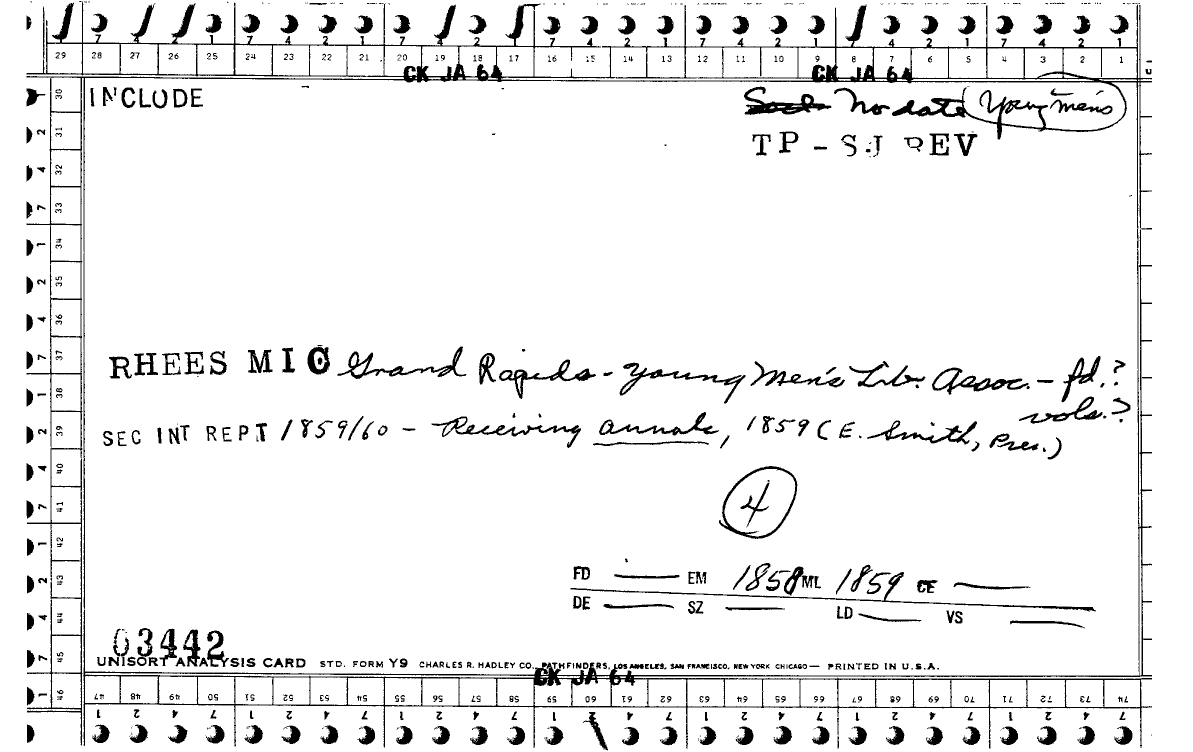 7 4 2 1 7 4 2 1 7 4 2 1 7 4 2 1 7 4 2 1 7 4 2 1 7 4 2 1
29 28 27 26 25 24 23 22 21 20 19 18 17 16 15 14 13 12 11 10 9 8 7 6 5 4 3 2 1
CK JA 64 CK JA 64
INCLUDE
No date Young men's
TP - SJ REV
RHEES MIC Grand Rapids - Young Men's Lib. Assoc. - fd.?
vols.?
SEC INT REPT 1859/60 - Receiving annals, 1859 (E. Smith, Pres.)
4
FD — EM 1858 ML 1859 CE —
DE — SZ — LD — VS —
03442
UNISORT ANALYSIS CARD STD. FORM Y9 CHARLES R. HADLEY CO., PATHFINDERS, LOS ANGELES, SAN FRANCISCO, NEW YORK CHICAGO — PRINTED IN U.S.A.
CK JA 64
1 30
2 31
4 32
7 33
1 34
2 35
4 36
7 37
1 38
2 39
4 40
7 41
1 42
2 43
4 44
7 45
1 46
47 48 49 50 51 52 53 54 55 56 57 58 59 60 61 62 63 64 65 66 67 68 69 70 71 72 73 74
1 2 4 7 1 2 4 7 1 2 4 7 1 2 4 7 1 2 4 7 1 2 4 7 1 2 4 7